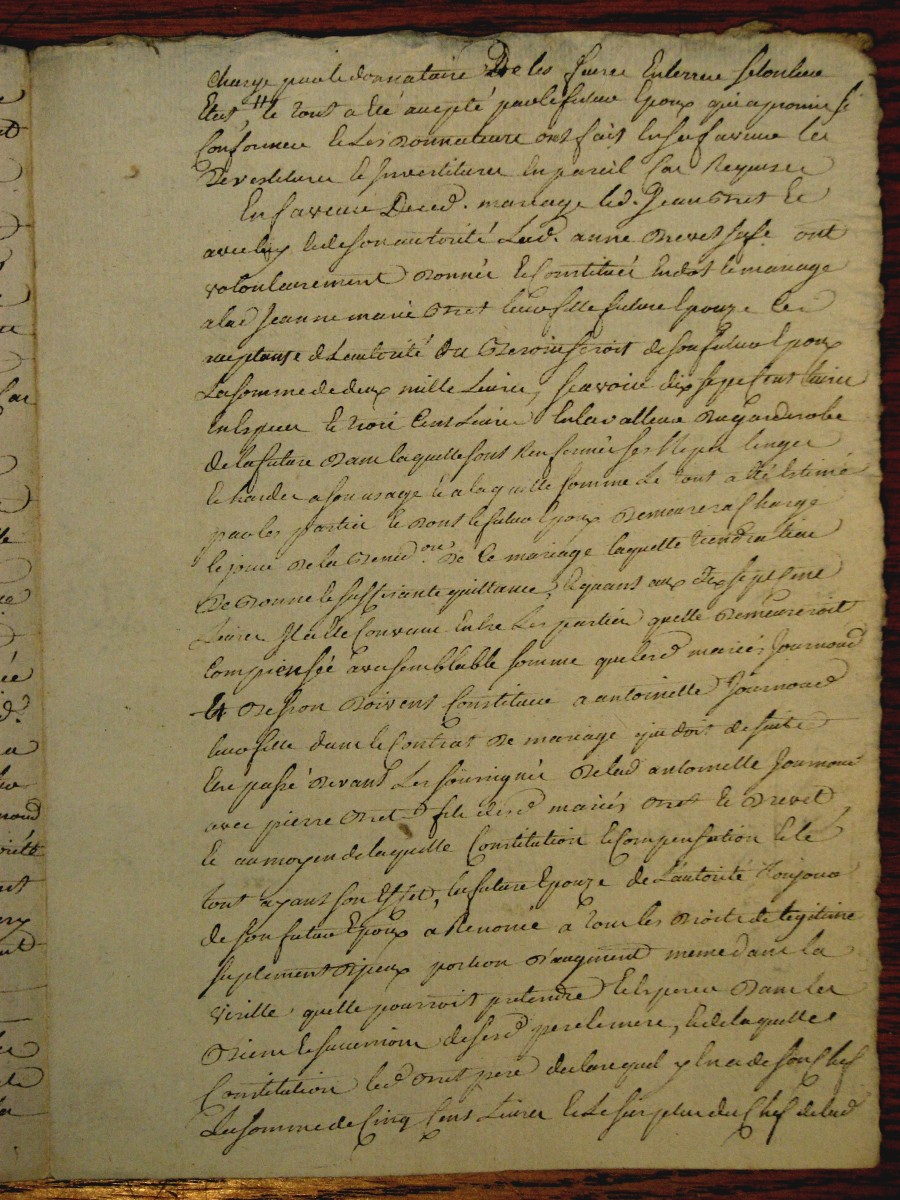 charge par le donnataire De les faire enterrer selon leur
Etat, le tout a été accepté par le futur Epoux qui a promis si
Conformer et les Donnateurs ont fait en sa faveur les
Devestitures et Investitures en pareil Cas Requises
En faveur Duced. mariage led. Jean Oret et
avec luy et de son autorité Lad. anne Brevet sa fe. ont
volontairement Donnée et Constituée en dot et mariage
a lad Jeanne marie Oret leur fille future Epouze ce
acceptante de L'autorité du Besoin seroit de son futur Epoux
La somme de deux mille Livres, scavoir dix sept Cent Livres
en Especes et trois Cens Livres en la valleur Du garderobe
de la future Dans laquelle sont Renfermés ses nipes linges
et hardes a son usage et a laquelle somme Le tout a été Estimé
par les parties et Dont le futur Epoux Demeurera Chargé
le jour De la Bened.on De ce mariage laquelle tiendra lieu
De Bonne et suffisante quittance, et quant aux Dix sept Cens
Livres Il a été Convenu entre Les parties quelle Demeureroit
Compensée avec semblable somme que lesd mariés Journoud
et Doivent Constituer a antoinette Journoud
leur fille dans le Contrat De mariage qui doit de suite
être passé Devant Les soussignés De lad antoinette Journoud
avec pierre Oret fils desd mariés Oret et Brevet,
et au moyen de laquelle Constitution et Compensation et le
tout ayant son Effet, la future Epouze de L'autorité Toujours
de son futur Epoux a Renoncé a Tous les Droits de legitime
suplement D'jeux portion D'augment meme dans la
virille quelle pourroit pretendre et Esperer Dans les
Biens et successions de sesd pere et mere, et de laquelle
Constitution led Oret pere declare quil y en a de son Chef
La somme de Cinq Cens Livres et Le surplus du Chef de lad